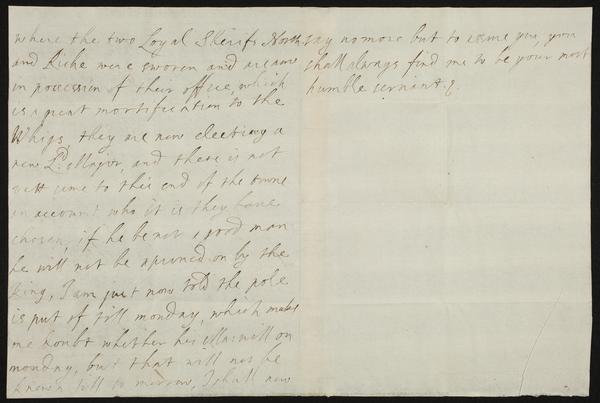 where the two Loyal Sherifs North
and Riche were sworen and are now
in possesion of their office, which
is a great mortification to the
Whigs, they are now electing a
new Ld. Major, and there is not
yett come to this end of the towne
an account who it is they have
chosen, if he be not a good man
he will not be aproned on by the
King, I am just now told the pole
is put of till monday, which makes
me doubt whether his Ma: will on
monday, but that will not be
knowen till to morrow, I shall now
say no more but to assure you, you
shall always find me to be your most
humble servant.